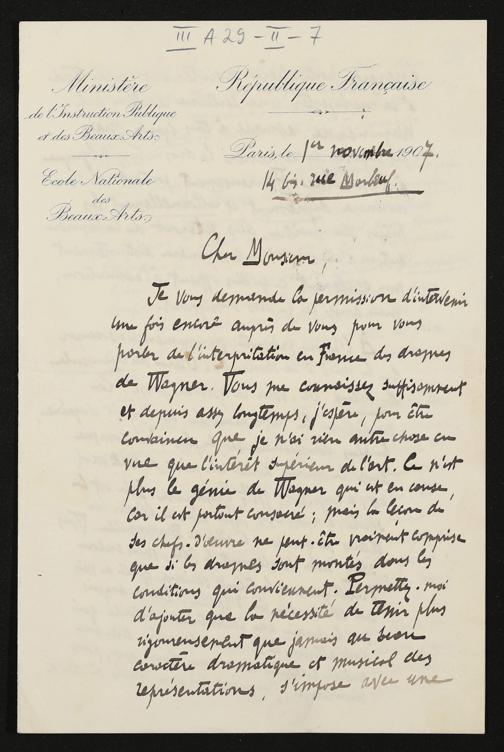 III A 29 - II - 7
Ministère
de l'Instruction Publique
et des Beaux-Arts
Ecole Nationale
des
Beaux-Arts
République Française
Paris, le 1er novembre 1907.
14 bis. rue Marbeuf.
Cher Monsieur,
Je vous demande la permission d'intervenir
une fois encore auprès de vous pour vous
parler de l'interprétation en France des drames
de Wagner. Vous me connaissez suffisamment
et depuis assez longtemps, j'espère, pour être
convaincu que je n'ai rien autre chose en
vue que l'intérêt supérieur de l'art. Ce n'est
plus le génie de Wagner qui est en cause,
car il est partout consacré ; mais la leçon de
ses chefs-d'oeuvre ne peut-être vraiment comprise
que si les drames sont montés dans les
conditions qui conviennent. Permettez-moi
d'ajouter que la nécessité de tenir plus
rigoureusement que jamais au
caractère dramatique et musical des
représentations, s'impose avec une